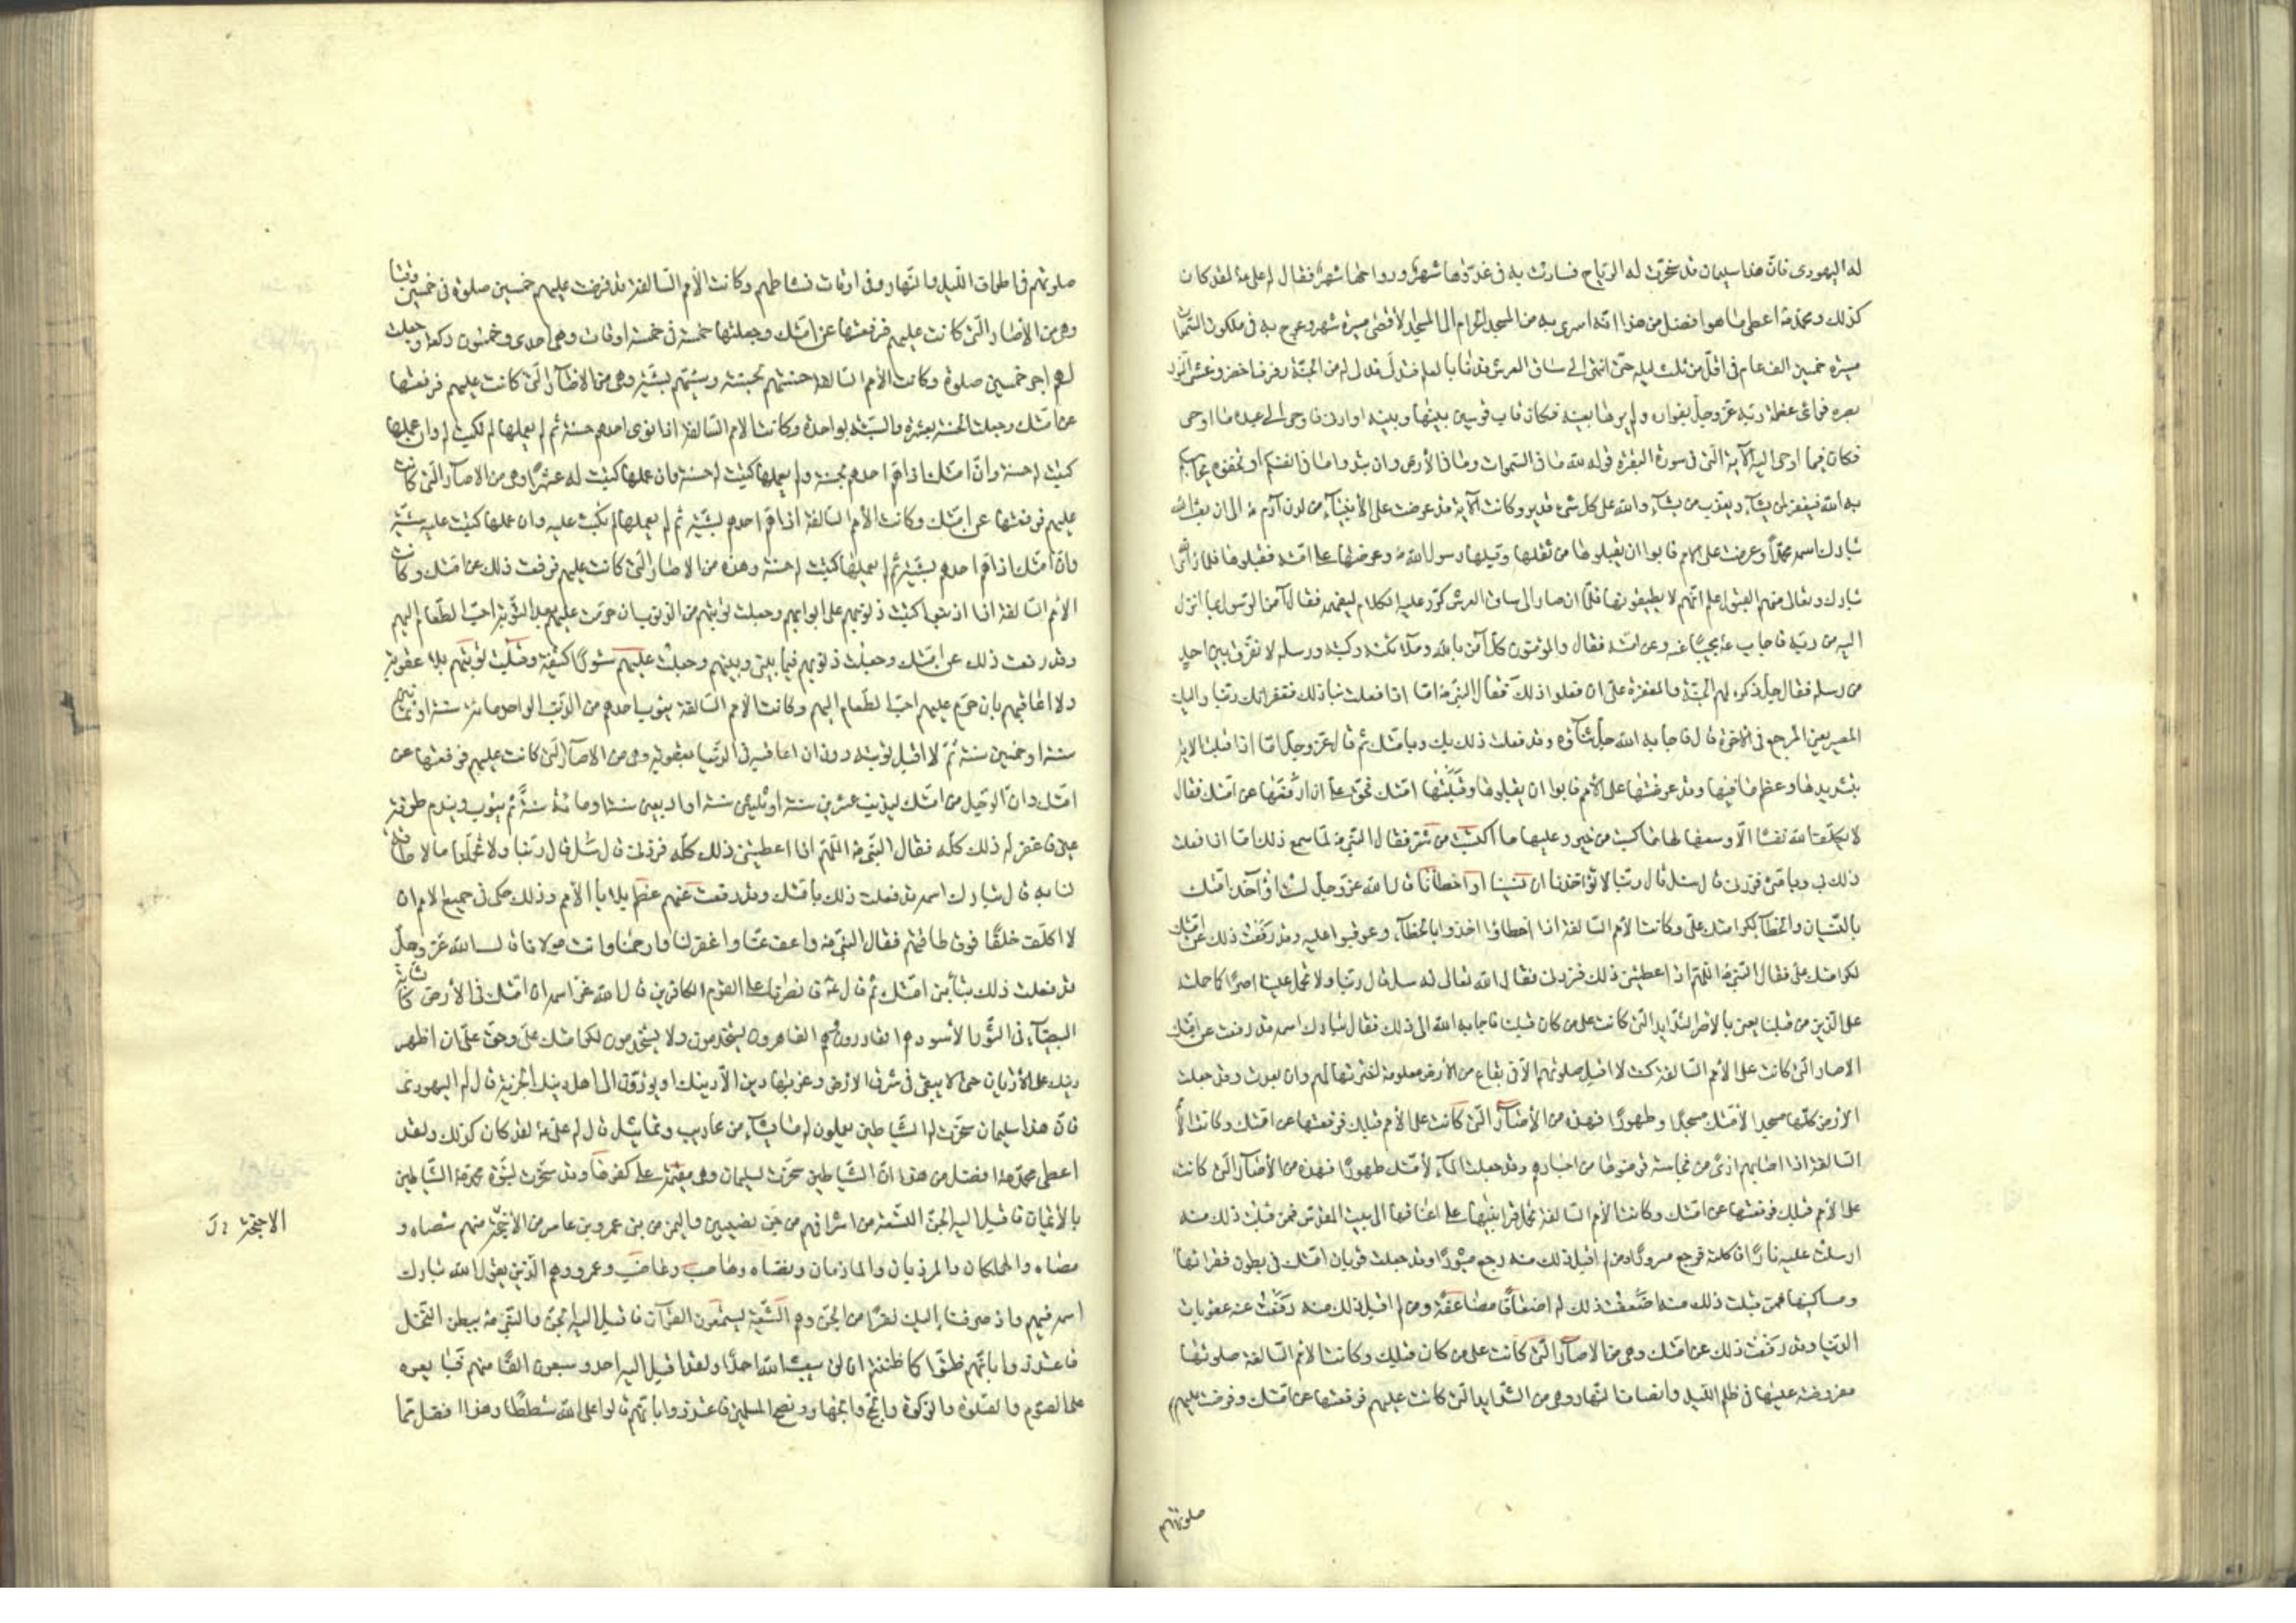 له اليهودى فانّ هذا سليمان قد سخّرت له الرياح فسارت به فى غدوّها شهر ورواحها شهر فقال له على ع لقد كان
كذلك ومحمّد ص اعطى ما هو افضل من هذا انّه اسرى به من المسجد الحرام الى المسجد الأقصى مسيرة شهر وعرج به فى ملكوت السّموات
مسيرة خمسين الف عام فى اقلّ من ثلث ليله حتّى انتهى الى ساق العرش فدنا بالعلم فتدلّى فدلى له من الجنّة رفرف اخضر وغشى النّور
بصره فراى عظمة ربّه عزّ وجلّ بفؤاده ولم يرها بعينه فكان قاب قوسين بينها وبينه او ادنى فاوحى الى عبده ما اوحى
فكان فيما اوحى اليه الآية الّتى فى سورة البقرة قوله لله ما فى السّموات وما فى الأرض وان تبدوا ما فى انفسكم او تخفوه يحاسبكم
به الله فيغفر لمن يشآء ويعذّب من يشآء والله على كلّ شىء قدير وكانت الآية قد عرضت على الأنبيآء من لدن آدم ع الى ان بعث الله
تبارك اسمه محمّدًا وعرضت على الامم فابوا ان يقبلوها من ثقلها وقبلها رسول الله ص وعرضها على امّته فقبلوها فلمّا راى الله
تبارك وتعالى منهم القبول علم انّهم لا يطيقونها فلمّا ان صار الى ساق العرش كرّر عليه الكلام ليفهمه فقال آمن الرّسول بما انزل
اليه من ربّه فاجاب ص مجيبًا عنه وعن امّته فقال والمؤمنون كلّ آمن بالله وملائكته وكتبه ورسله لا نفرّق بين احد
من رسله فقال جلّ ذكره لهم الجنّة والمغفرة علىّ ان فعلوا ذلك فقال النبى ص امّا اذا فعلت بنا ذلك فغفرانك ربّنا واليك
المصير يعنى المرجع فى الآخرة قال فاجابه الله جلّ ثنآؤه وقد فعلت ذلك بك وبامّتك ثم قال عزّ وجلّ امّا اذا قبلت الآية
بتشديدها وعظم ما فيها وقد عرضتها على الأمم فابوا ان يقبلوها وقبلتها امّتك فحقّ علىّ ان ارفعها عن امّتك فقال
لا يكلّف الله نفسًا الّا وسعها لها ما كسبت من خير وعليها ما اكتسبت من شرّ فقال النبى ص لمّا سمع ذلك امّا اذا فعلت
ذلك بى وبامّتى فزدنى قال سل قال ربّنا لا تؤاخذنا ان نسينا او اخطأنا قال الله عزّ وجلّ لست اؤآخذ امّتك
بالنّسيان والخطآء لكرامتك علىّ وكانت الأمم السّالفة اذا اخطاؤا اخذوا بالخطآء وعوقبوا عليه وقد رفعت ذلك عن امّتك
لكرامتك علىّ فقال النّبى ص اللّهمّ اذ اعطيتنى ذلك فزدنى فقال الله تعالى له سل قال ربّنا ولا تحمل علينا اصرًا كما حملته
على الّذين من قبلنا يعنى بالاصر الشّدايد الّتى كانت على من كان قبلنا فاجابه الله الى ذلك فقال تبارك اسمه قد رفعت عن امّتك
الاصار الّتى كانت على الأمم السّالفة كنت لا اقبل صلوتهم الّا فى بقاع من الأرض معلومة اخترتها لهم وان بعدت وقد جعلت
الأرض كلّها مسجد الأمّتك مسجدًا وطهورًا فهذه من الأصار الّتى كانت على الأمم قبلك فرفعتها عن امّتك وكانت الأمم
السّالفة اذا اصابهم اذى من نجاسة قرضوها من اجسادهم وقد جعلت المآء لأمّتك طهورًا فهذه من الأصار الّتى كانت
على الأمم قبلك فرفعتها عن امّتك وكانت الأمم السّالفة تحمل قرابينها على اعناقها الى بيت المقدّس فمن قبلت ذلك منه
ارسلت عليه نارًا فاكلته فرجع مسرورًا ومن لم اقبل ذلك منه رجع مثبورًا وقد جعلت قربان امّتك فى بطون فقرائها
ومساكينها فمن قبلت ذلك منه اضعفت ذلك له اضعافًا مضاعفة ومن لم اقبل ذلك منه رفعت عنه عقوبات
الدّنيا وقد رفعت ذلك عن امّتك وهى من الاصار الّتى كانت على من كان قبلك وكانت الأمم السّالفة صلوتها
مفروضة عليها فى ظلم اللّيل وانصاف النّهار وهى من الشّدايد الّتى كانت عليهم فرفعتها عن امّتك وفرضت عليهم
صلوتهم
صلوتهم فى اطراف اللّيل والنّهار وفى اوقات نشاطهم وكانت الأمم السّالفة قد فرضت عليهم خمسين صلوة فى خمسين وقتًا
وهى من الاصار الّتى كانت عليهم فرفعتها عن امّتك وجعلتها خمسة فى خمسة اوقات وهى احدى وخمسون ركعة وجعلت
لهم اجر خمسين صلوة وكانت الأمم السّالفة حسنتهم بحسنة وسيّئتهم بسيّئة وهى من الاصار الّتى كانت عليهم فرفعتها
عن امّتك وجعلت الحسنة بعشرة والسيّئة بواحدة وكانت الأمم السّالفة اذا نوى احدهم حسنة ثم لم يعملها لم تكتب له وان عملها
كتبت له حسنة وانّ امّتك اذا همّ احدهم بحسنة ولم يعملها كتبت له حسنة وان عملها كتبت له عشرًا وهى من الاصار الّتى كانت
عليهم فرفعتها عن امّتك وكانت الأمم السّالفة اذا همّ احدهم بسيّئة ثم لم يعملها لم تكتب عليه وان عملها كتبت عليه سيّئة
وانّ امّتك اذا همّ احدهم بسيّئة ثم لم يعملها كتبت له حسنة وهذه من الاصار الّتى كانت عليهم فرفعت ذلك عن امّتك وكانت
الأمم السّالفة اذا اذنبوا كتبت ذنوبهم على ابوابهم وجعلت توبتهم من الذّنوب ان حرّمت عليهم بعد التّوبة احبّ الطّعام اليهم
وقد رفعت ذلك عن امّتك وجعلت ذنوبهم فيما بينى وبينهم وجعلت عليهم ستورًا كثيفة وقبلت توبتهم بلا عقوبة
ولا اعاقبهم بان احرّم عليهم احبّ الطّعام اليهم وكانت الأمم السّالفة يتوب احدهم من الذّنب الواحد مائة سنة او ثمانين
سنة او خمسين سنة ثمّ لا اقبل توبته دون ان اعاقبه فى الدّنيا بعقوبة وهى من الاصار الّتى كانت عليهم فرفعتها عن
امّتك وانّ الرّجل من امّتك ليذنب عشرين سنة او ثلثين سنة او اربعين سنة او مائة سنة ثم يتوب ويندم طرفة
عين فاغفر له ذلك كلّه فقال النّبى ص اللّهمّ اذا اعطيتنى ذلك كلّه فزدنى قال سل قال ربّنا ولا تحمّلنا ما لا طاقة
لنا به قال تبارك اسمه قد فعلت ذلك بامّتك وقد رفعت عنهم عظم بلايا الأمم وذلك حكمى فى جميع الأمم ان
لا اكلّف خلقًا فوق طاقتهم فقال النبى ص واعف عنّا واغفر لنا وارحمنا وانت مولانا قال الله عزّ وجلّ
قد فعلت ذلك بتائبى امّتك ثم قال ص فانصرنا على القوم الكافرين قال الله عزّ اسمه ان امّتك فى الأرض كالشّامة
البيضآء فى الثّور الأسود هم القادرون وهم القاهرون يستخدمون ولا يستخدمون لكرامتك علىّ وحقّ علىّ ان اظهر
دينك على الأديان حتى لا يبقى فى شرق الأرض وغربها دين الّا دينك او يؤدّون الى اهل دينك الجزية قال له اليهودى
فانّ هذا سليمان سخّرت له الشّياطين يعملون له ما يشآء من محاريب وتماثيل قال له على ع لقد كان كذلك ولقد
اعطى محمّد ص افضل من هذا انّ الشّياطين سخّرت لسليمان وهى مقيمة على كفرها وقد سخّرت لنبوّة محمّد ص الشّياطين
بالأيمان فاقبل اليه الجنّ التّسعة من اشرافهم من جنّ نصيبين واليمن من بنى عمرو بن عامر من الأجنّة منهم شصاه و
مصاه والهملكان والمرزبان والمازمان ونضاه وهاصب وهاضب وعمرو وهم الّذين يقول الله تبارك
اسمه فيهم واذ صرفنا إليك نفرًا من الجنّ وهم التّسعة يستمعون القرآن فاقبل اليه الجنّ والنّبى ص ببطن النّخل
فاعتذروا بانّهم ظنّوا كما ظننتم ان لن يبعث الله احدًا ولقد اقبل اليه احد وسبعون الفًا منهم فبايعوه
على الصّوم والصّلوة والزّكوة والحجّ والجهاد ونصح المسلمين فاعتذروا بانّهم قالوا على الله شططًا وهذا افضل ممّا
الاجنّة خ ل